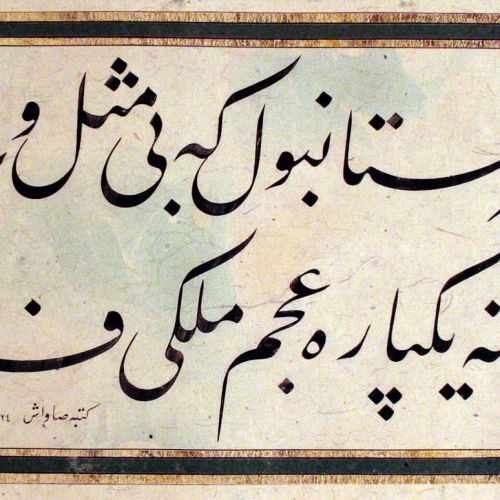 ستانبول که بی مثل و
نه یکپاره عجم ملکی ف
کتبه صاواش ٢٤